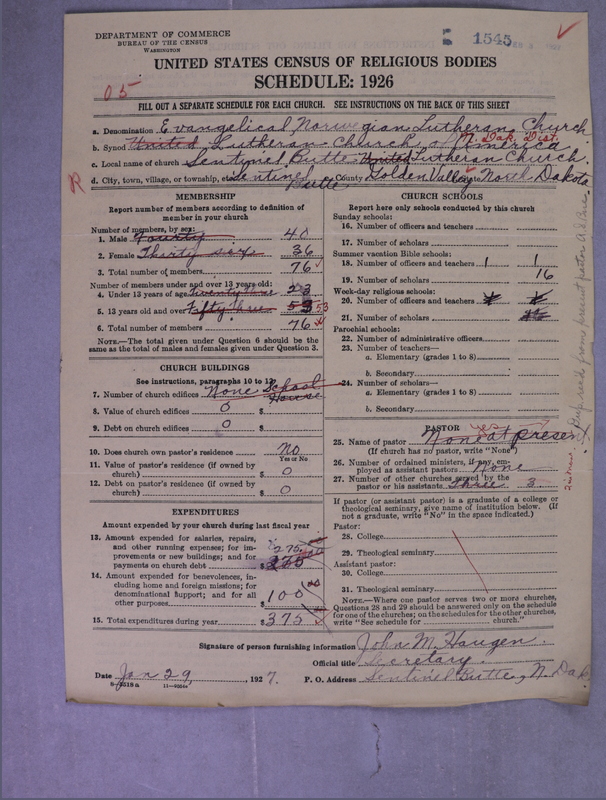 DEPARTMENT OF COMMERCE
BUREAU OF THE CENSUS
WASHINGTON
1545
UNITED STATES CENSUS OF RELIGIOUS BODIES
SCHEDULE: 1926
05
FILL OUT A SEPARATE SCHEDULE FOR EACH CHURCH. SEE INSTRUCTIONS ON THE BACK OF THIS SHEET
a. Denomination Evangelical Norwegian Lutheran Church
b. Synod United Lutheran Church of America N. Dak. Dist.
c. Local name of church Sentinel Butte United Lutheran Church.
R
d. City, town, village, or township, etc. Sentinel Butte County Golden Valley State North Dakota
MEMBERSHIP
Report number of members according to definition of
member in your church
Number of members, by sex:
1. Male Fourty 40
2. Female Thirty six 36
3. Total number of members 76
Number of members under and over 13 years old:
4. Under 13 years of age Twenty three 23
5. 13 years old and over Fifty three 53 53
6. Total number of members 76
NOTE.—The total given under Question 6 should be the
same as the total of males and females given under Question 3.
CHURCH BUILDINGS
See instructions, paragraphs 10 to 12
7. Number of church edifices None School House
8. Value of church edifices 0 $
9. Debt on church edifices 0 $
10. Does church own pastor's residence No
Yes or No
11. Value of pastor's residence (if owned by
church) $ 0
12. Debt on pastor's residence (if owned by
church) $ 0
EXPENDITURES
Amount expended by your church during last fiscal year
13. Amount expended for salaries, repairs,
and other running expenses; for im-
provements or new buildings; and for
payments on church debt $ 275
14. Amount expended for benevolences, in-
cluding home and foreign missions; for
denominational support; and for all
other purposes $ 100
15. Total expenditures during year $ 375
CHURCH SCHOOLS
Report here only schools conducted by this church
Sunday schools:
16. Number of officers and teachers
17. Number of scholars
Summer vacation Bible schools:
18. Number of officers and teachers 1 1
19. Number of scholars 16
Week-day religious schools:
20. Number of officers and teachers
21. Number of scholars
Parochial schools:
22. Number of administrative officers
23. Number of teachers—
a. Elementary (grades 1 to 8)
b. Secondary
24. Number of scholars—
a. Elementary (grades 1 to 8)
b. Secondary
PASTOR
yes
25. Name of pastor None at present
(If church has no pastor, write "None")
26. Number of ordained ministers, if any, em-
ployed as assistant pastors None
27. Number of other churches served by the
pastor or his assistants Three 3
If pastor (or assistant pastor) is a graduate of a college or
theological seminary, give name of institution below. (If
not a graduate, write "No" in the space indicated.)
Pastor:
28. College
29. Theological seminary
Assistant pastor:
30. College
31. Theological seminary
NOTE.—Where one pastor serves two or more churches,
Questions 28 and 29 should be answered only on the schedule
for one of the churches; on the schedules for the other churches,
write "See schedule for church."
Signature of person furnishing information John M. Haugen
Official title Secretary
Date Jan 29, 1927. P. O. Address Sentinel Butte, N. Dak.